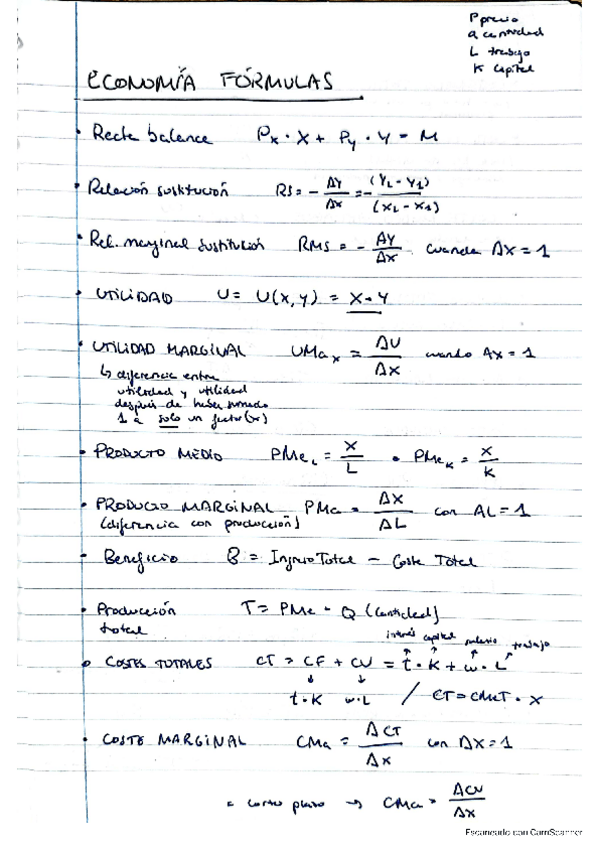 P precio
Q cantidad
L trabajo
K capital
ECONOMÍA FÓRMULAS
• Recta balance Px · X + Py · Y = M
• Relación sustitución RS = - ΔY/Δx = - (Y2 - Y1)/(X2 - X1)
• Rel. marginal sustitución RMS = - ΔY/Δx cuando Δx = 1
• UTILIDAD U = U(x,y) = X · Y
• UTILIDAD MARGINAL UMa x = ΔU/Δx cuando Δx = 1
↳ diferencia entre
utilidad y utilidad
después de haber sumado
1 a solo un factor (x)
• PRODUCTO MEDIO PMe L = X/L • PMe K = X/K
• PRODUCTO MARGINAL PMa = ΔX/ΔL con ΔL = 1
(diferencia con producción)
• Beneficio B = Ingreso Total - Coste Total
• Producción T = PMe · Q (cantidad)
total
interés capital salario trabajo
• COSTES TOTALES CT = CF + CV = t · K + w · L
t · K w · L / CT = CMeT · X
• COSTE MARGINAL CMa = ΔCT/Δx con Δx = 1
a corto plazo → CMa = ΔCV/Δx
Escaneado con CamScanner